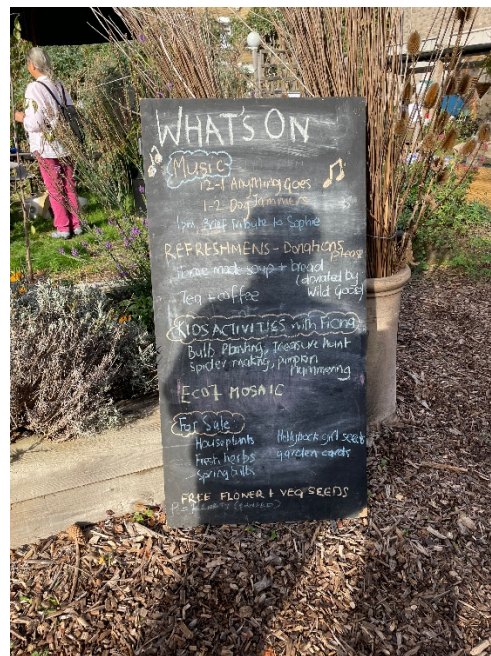 WHAT'S ON
Music
12-1 Anything Goes
1-2 Dog Jammers
1pm, Brief Tribute to Sophie
REFRESHMENS - Donations
please
Home made soup + bread
(donated by
Tea + coffee
Wild Goose)
KIDS ACTIVITIES with Fiona
Bulb Planting, Treasure hunt
spider making, pumpkin
hammering
ECO7 MOSAIC
For Sale
Houseplants
Hollyhock girl seeds
Fresh herbs
garden cards
Spring bulbs
FREE FLOWER + VEG SEEDS